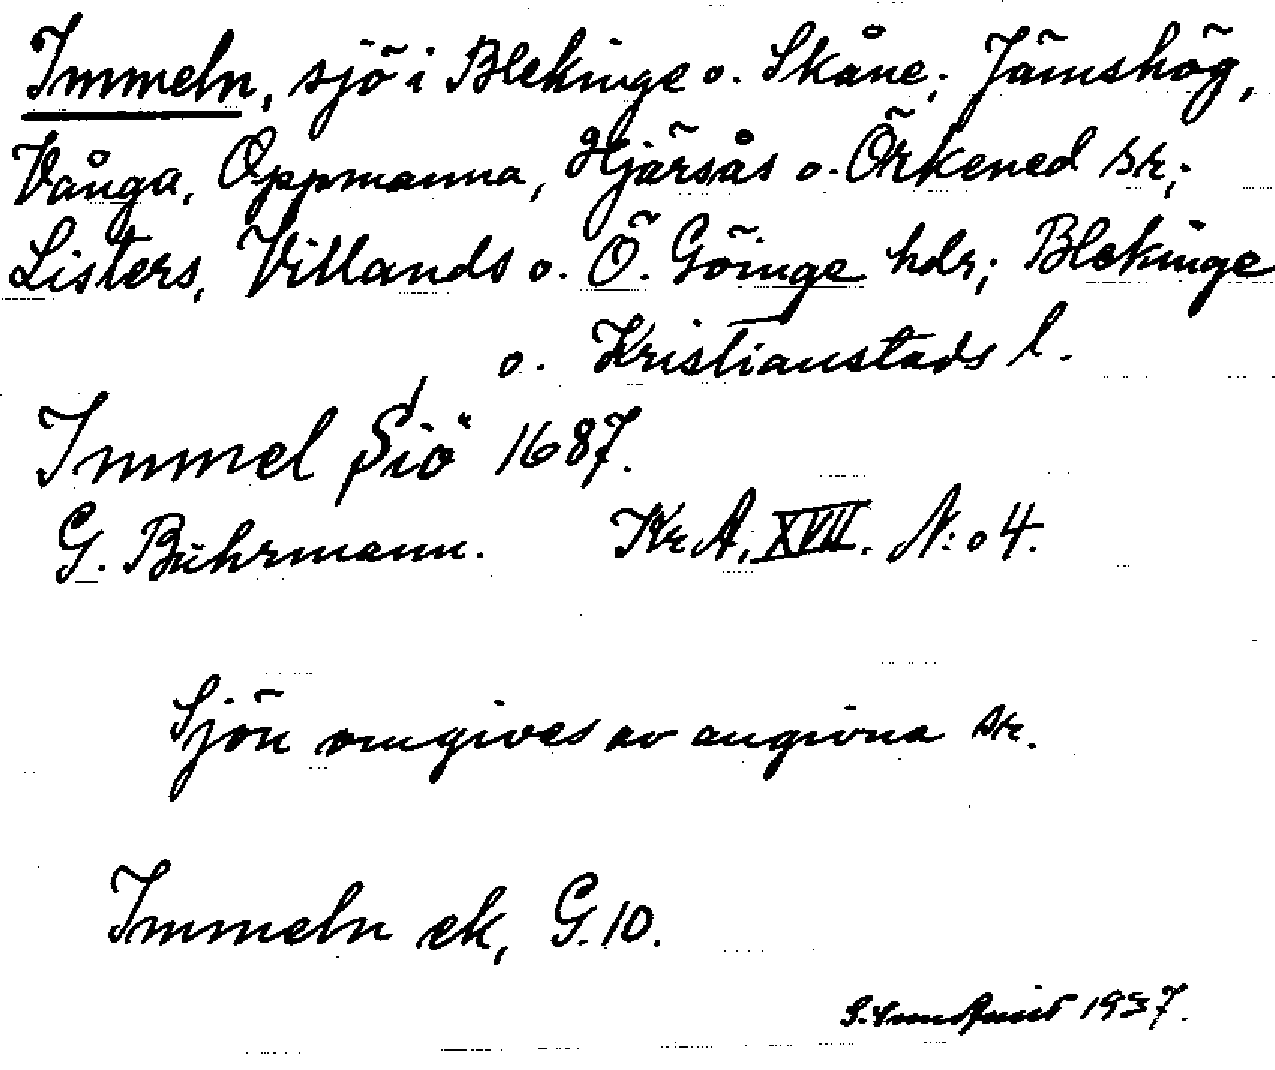 Immeln, sjö i Blekinge o. Skåne; Jämshög,
Vånga, Oppmanna, Hjärsås o. Örkened sr;
Listers, Villands o. Ö. Göinge hdr; Blekinge
o. Kristianstads l.
Immel Siö 1687.
G. Buhrmann. KrA, XVII. N:o 4.
Sjön omgives av angivna sr.
Immeln ek, G. 10.
1937.